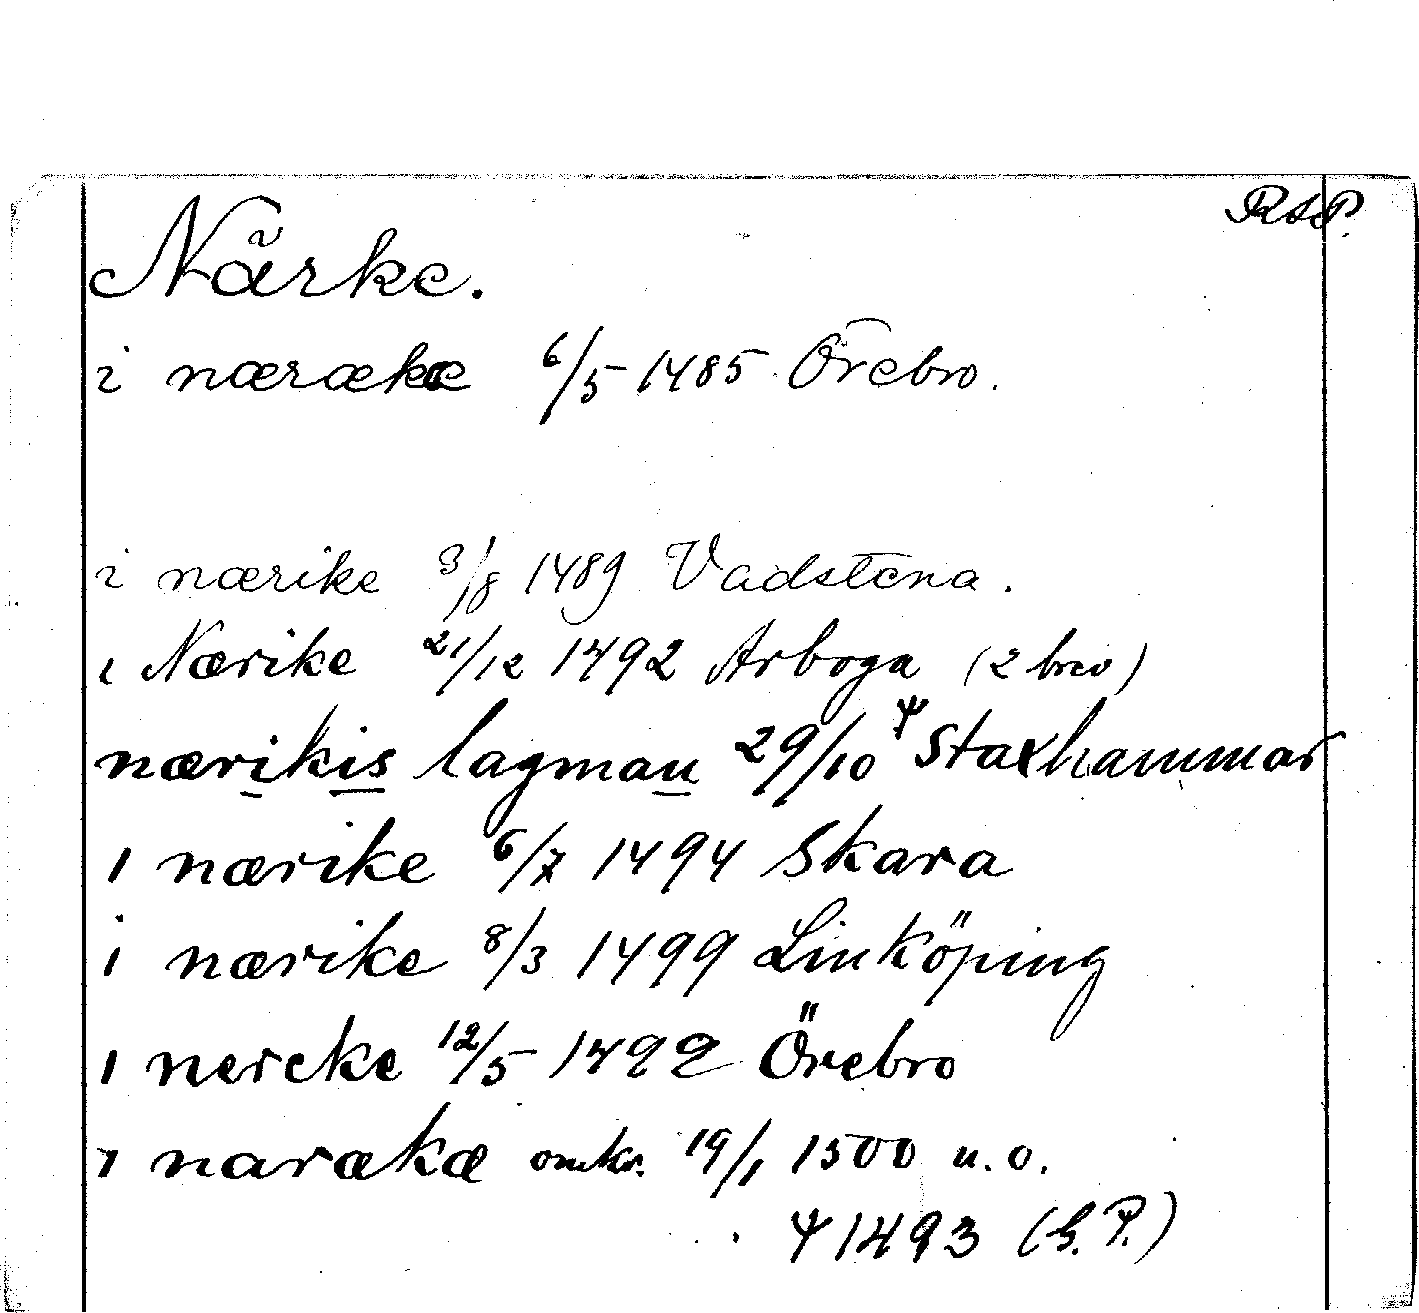 RAP.
Närke.
i næræke 6/5 1485 Örebro.
i nærike 3/8 1489 Vadstena.
i Nærike 21/12 1492 Arboga (2 brev)
nærikis lagman 29/10 Ψ Staxhammar
i nærike 6/7 1494 Skara
i nærike 8/3 1499 Linköping
i nercke 12/5 1499 Örebro
i narækæ omkr. 19/1 1500 u.o.
Ψ 1493 (G.P.)